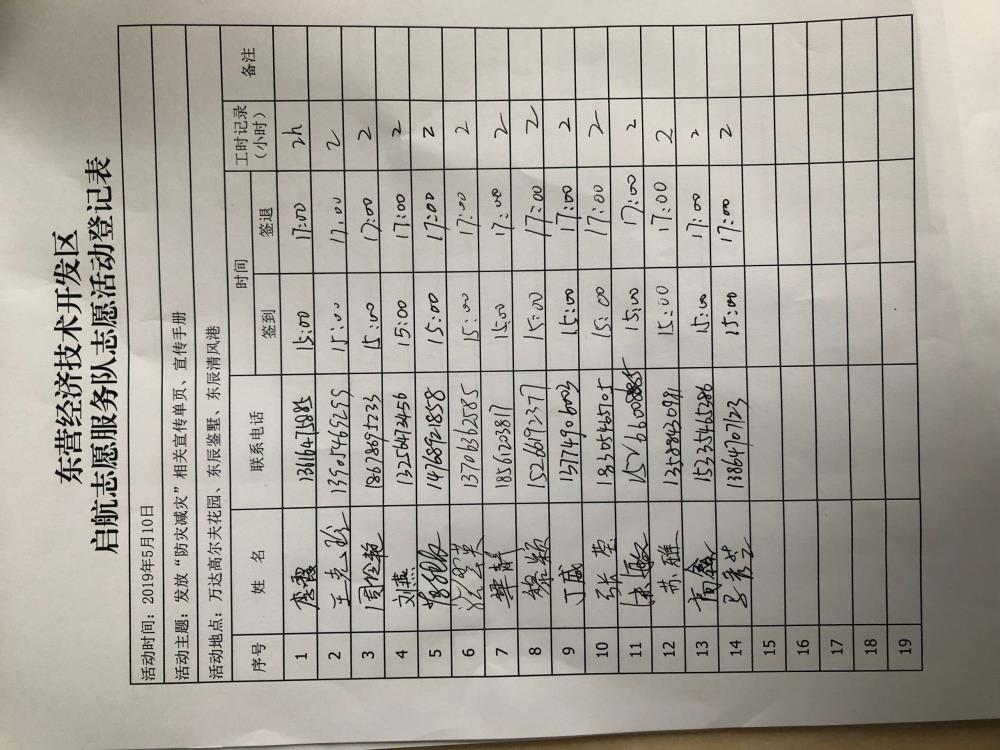 东营经济技术开发区
启航志愿服务队志愿活动登记表
活动时间：2019年5月10日
活动主题：发放“防灾减灾”相关宣传单页、宣传手册
活动地点：万达高尔夫花园、东辰鉴墅、东辰清风港
序号 姓 名 联系电话 时间 签到 签退 工时记录（小时） 备注
1 李霞 13616475885 15:00 17:00 2h
2 13905469299 15:00 17:00 2
3 18678695233 15:00 17:00 2
4 刘燕 13256473456 15:00 17:00 2
5 14768921858 15:00 17:00 2
6 13706362585 15:00 17:00 2
7 18561203817 15:00 17:00 2
8 黎颖 15266192377 15:00 17:00 2
9 丁威 13774906003 15:00 17:00 2
10 张荣 18305465705 15:00 17:00 2
11 15:00 17:00 2
12 苏雅 13589430991 15:00 17:00 2
13 高鑫 15235465286 15:00 17:00 2
14 13864707123 15:00 17:00 2
15
16
17
18
19